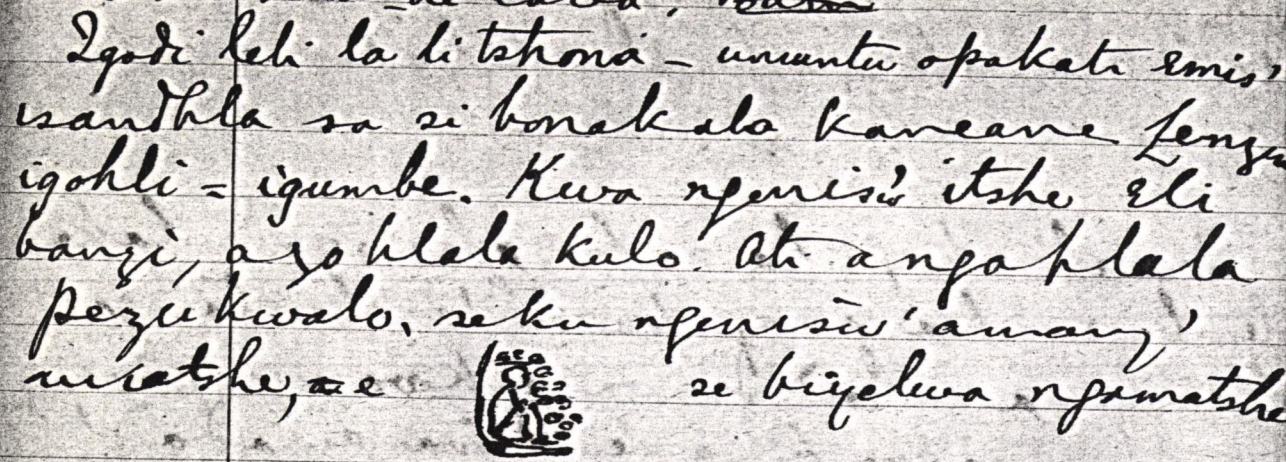 Igodi leli la li tshona - umuntu opakati emis'
isandhla sa si bonakala kancane Lenziwa
igohli = igumbe. Kwa ngenisiw' itshe eli
banzi, azohlala kulo. Ati angahlala
pezu kwalo, seku ngenisiw' amany'
amatshe, e
se biyelwa ngamatshe